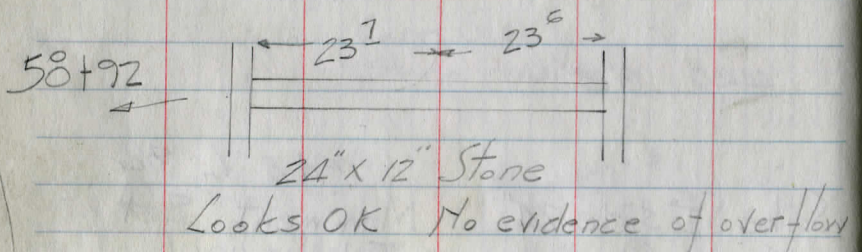 23⁷ 23⁶
58+92
24" x 12" Stone
Looks OK No evidence of overflow